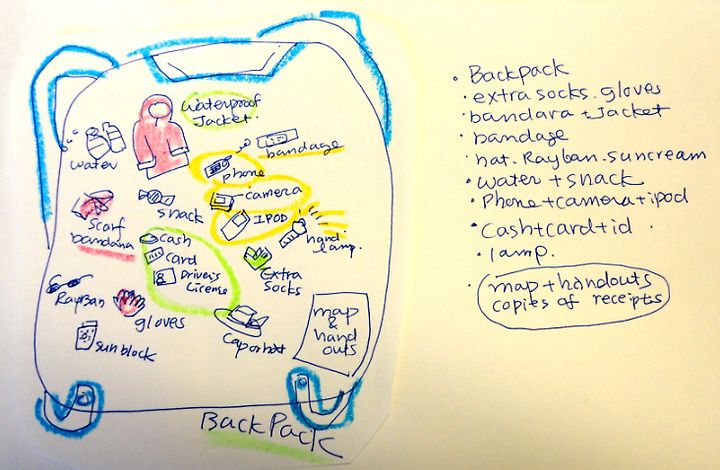 Waterproof
Jacket.
water
bandage
phone
camera
snack
IPOD
Scarf
bandana
hand
lamp.
cash
card
Driver's
License
Extra
Socks
RayBan
gloves
Cap or hat
map
&
hand
outs
sun block
BackPack
• Backpack
• extra socks. gloves
• bandara + Jacket
• bandage
hat. Rayban. suncream
• water + snack
• Phone + camera + ipod
• Cash + card + id.
• lamp.
• map + handouts
copies of receipts